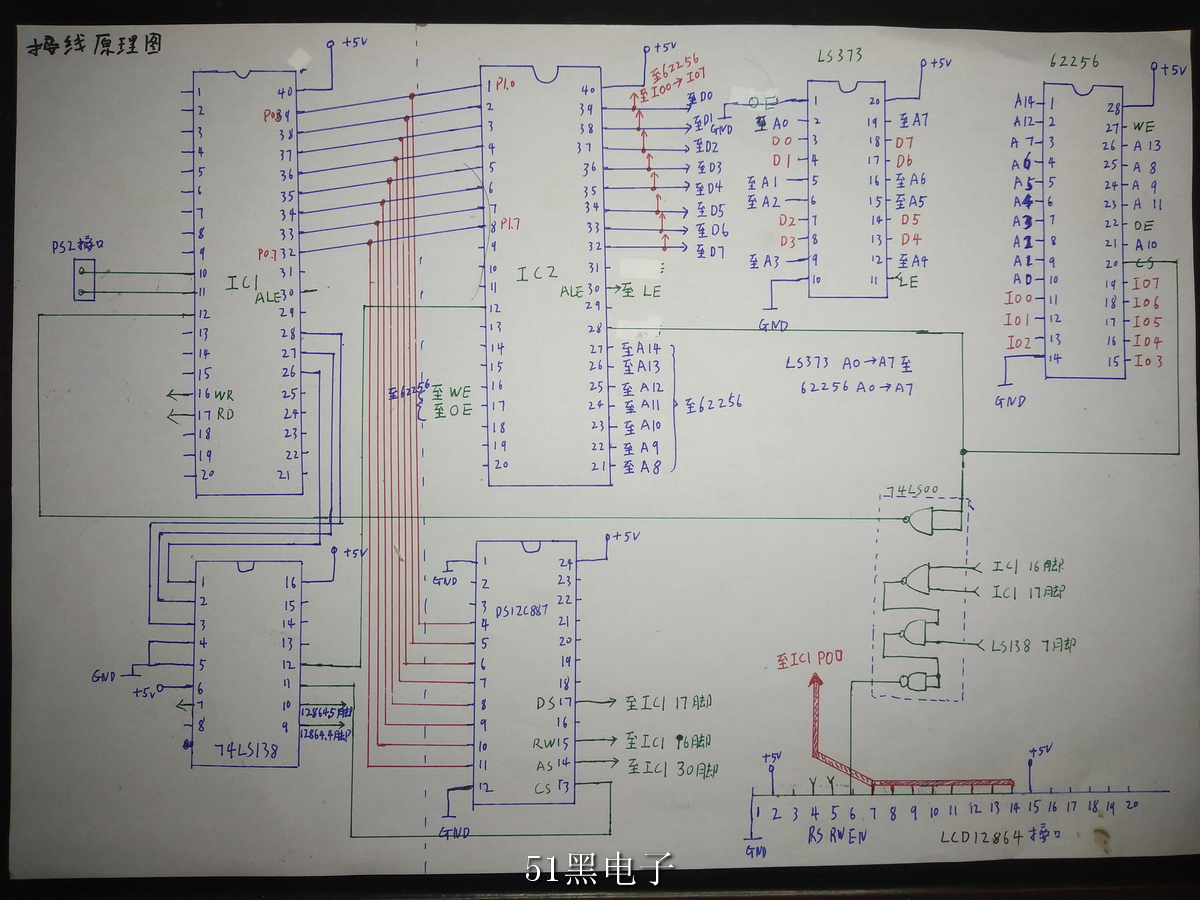 接线原理图
+5V
IC1
1
2
3
4
5
6
7
8
9
10
11
12
13
14
15
16 WR
17 RD
18
19
20
40
P0.0 39
38
37
36
35
34
33
P0.7 32
31
ALE 30
29
28
27
26
25
24
23
22
21
PS2接口
+5V
IC2
1 P1.0
2
3
4
5
6
7
8 P1.7
9
10
11
12
13
14
15
16
17
18
19
20
至62256
至WE
至OE
40
39
38
37
36
35
34
33
32
31
ALE 30 至LE
29
28
27 至A14
26 至A13
25 至A12
24 至A11
23 至A10
22 至A9
21 至A8
至62256
至62256
至IO0→IO7
至D0
至D1
至D2
至D3
至D4
至D5
至D6
至D7
LS373
+5V
OE 1
GND
至A0 2
D0 3
D1 4
至A1 5
至A2 6
D2 7
D3 8
至A3 9
10
GND
20
19 至A7
18 D7
17 D6
16 至A6
15 至A5
14 D5
13 D4
12 至A4
11 LE
LS373 A0→A7至
62256 A0→A7
62256
+5V
A14 1
A12 2
A7 3
A6 4
A5 5
A4 6
A3 7
A2 8
A1 9
A0 10
IO0 11
IO1 12
IO2 13
14
GND
28
27 WE
26 A13
25 A8
24 A9
23 A11
22 OE
21 A10
20 CS
19 IO7
18 IO6
17 IO5
16 IO4
15 IO3
74LS00
IC1 16脚
IC1 17脚
LS138 7脚
+5V
1
2
3
4
5
6
7
8
GND
+5V
74LS138
16
15
14
13
12
11
10 12864.5脚
9 12864.4脚
+5V
DS12C887
GND
1
2
3
4
5
6
7
8
9
10
11
12
GND
24
23
22
21
20
19
18
DS 17 至IC1 17脚
16
RW 15 至IC1 16脚
AS 14 至IC1 30脚
CS 13
至IC1 P0口
+5V
+5V
1 2 3 4 5 6 7 8 9 10 11 12 13 14 15 16 17 18 19 20
RS RW EN
LCD12864接口
GND
51黑电子